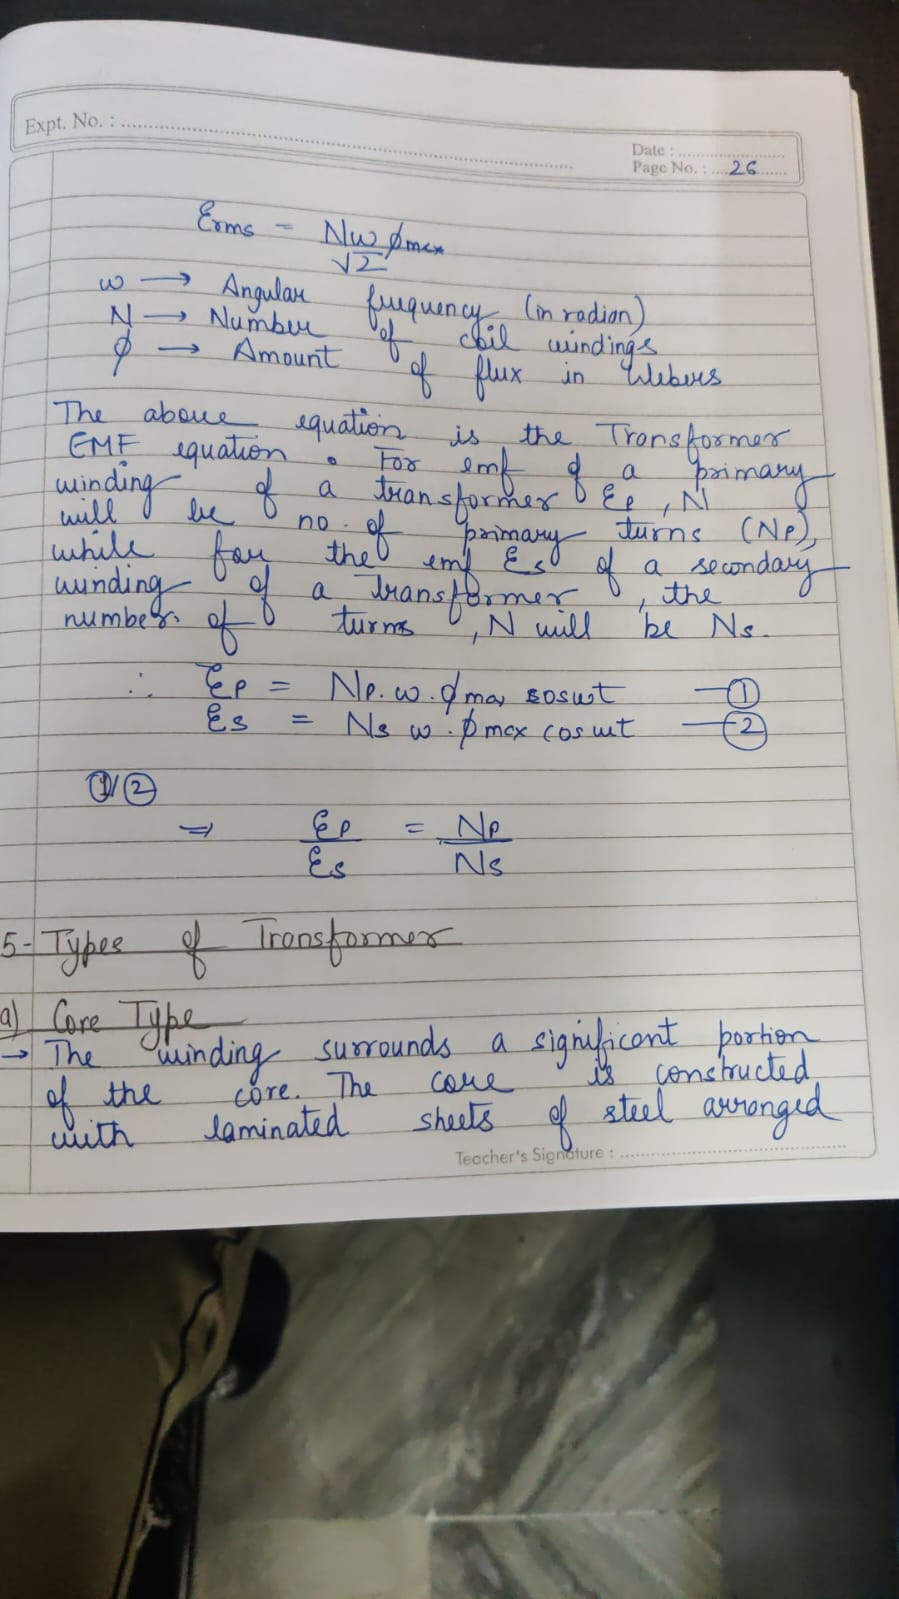 Expt. No. :
Date :
Page No. : 26
Erms = Nω ϕmax
√2
ω → Angular frequency (in radian)
N → Number of coil windings
ϕ → Amount of flux in Webers
The above equation is the Transformer
EMF equation. For emf of a primary
winding of a transformer Ep, N
will be no. of primary turns (Np),
while for the emf Es of a secondary
winding of a Transformer, the
number of turns, N will be Ns.
∴ Ep = Np. ω. ϕmax cosωt — ①
Es = Ns ω. ϕmax cosωt — ②
①/②
⇒ Ep = Np
Es Ns
5- Types of Transformer
a) Core Type
→ The winding surrounds a significant portion
of the core. The core is constructed
with laminated sheets of steel arranged
Teacher's Signature :